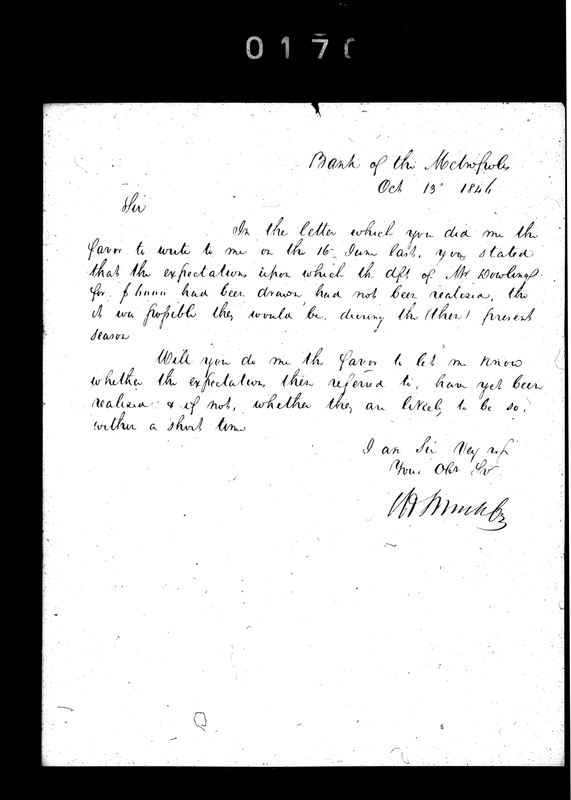 017
Bank of the Metropolis
Oct 13 1846
Sir
In the letter which you did me the
favor to write to me on the 16 June last, you stated
that the expectations upon which the dft of Mr Dowling
for $ had been drawn, had not been realised, tho
it was possible they would be, during the (then) present
season
Will you do me the favor to let me know
whether the expectations then referred to, have yet been
realised & if not, whether they are likely to be so,
within a short time
I am Sir Very
Your Obt Sv